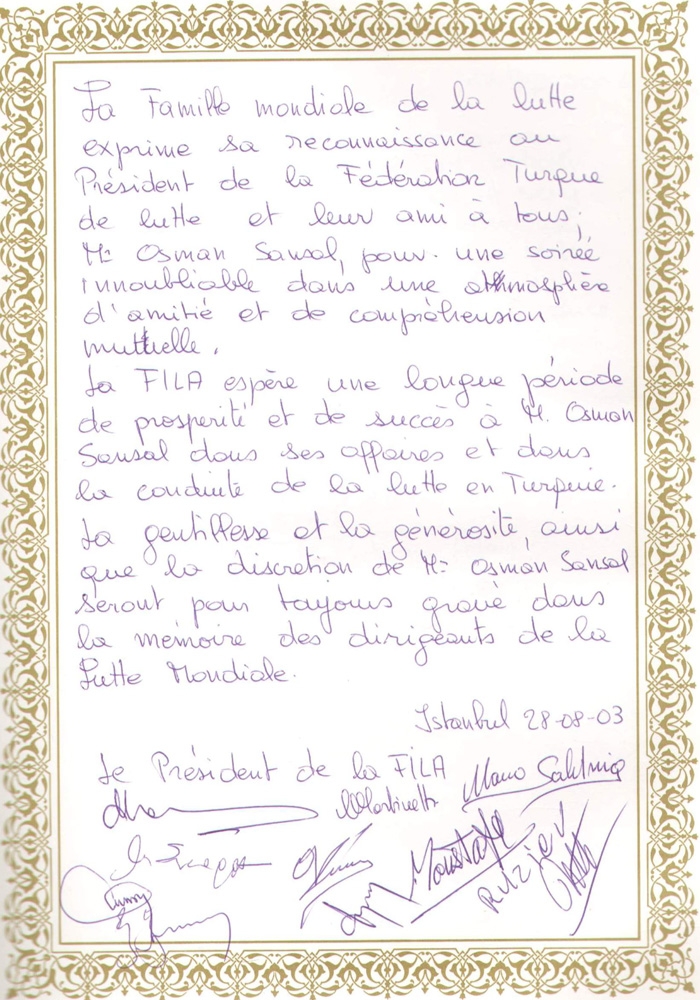 La Famille mondiale de la lutte
exprime sa reconnaissance au
Président de la Fédération Turque
de lutte et leur ami à tous,
Mr Osman Sansal, pour une soirée
innoubliable dans une athmosphère
d'amitié et de compréhension
mutuelle.
La FILA espère une longue période
de prosperité et de succès à M. Osman
Sansal dans ses affaires et dans
la conduite de la lutte en Turquie.
La gentillesse et la générosité, ainsi
que la discretion de Mr Osman Sansal
seront pour toujours gravé dans
la mémoire des dirigeants de la
Lutte Mondiale.
Istanbul 28-08-03
Le Président de la FILA
Martinetti
Moustafa